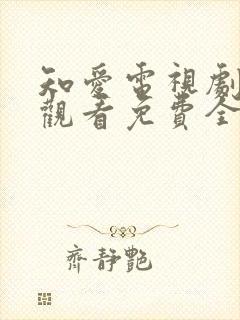 知愛電視劇
觀看免費全
齊靜艷